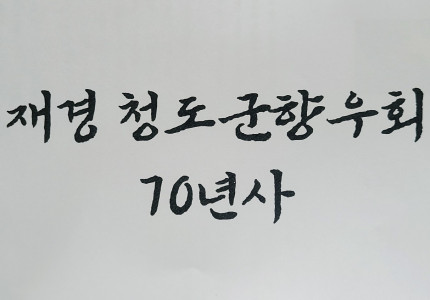 재경 청도군향우회
70년사